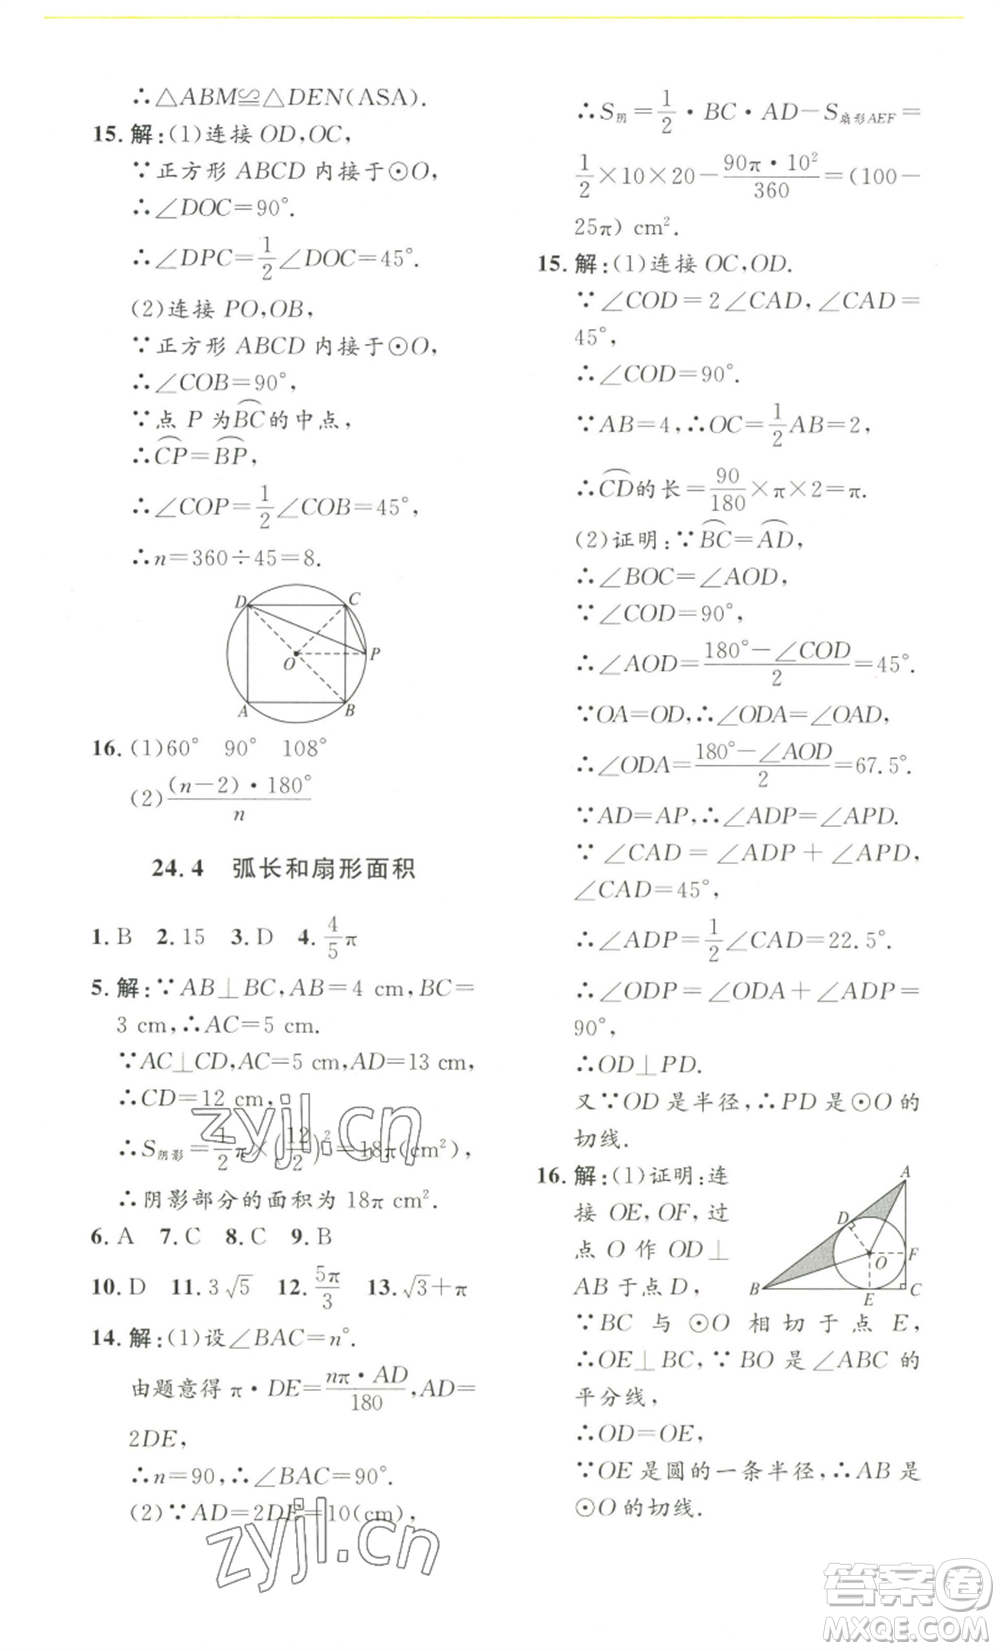 ∴△ABM≌△DEN(ASA).
15.解:(1)连接 OD,OC,
∵正方形 ABCD 内接于⊙O,
∴∠DOC=90°.
∴∠DPC=1/2∠DOC=45°.
(2)连接 PO,OB,
∵正方形 ABCD 内接于⊙O,
∴∠COB=90°,
∵点 P 为⌒BC的中点,
∴⌒CP=⌒BP,
∴∠COP=1/2∠COB=45°,
∴n=360÷45=8.
D C
O P
A B
16.(1)60° 90° 108°
(2)(n-2)·180°/n
24.4 弧长和扇形面积
1.B 2.15 3.D 4.4/5π
5.解:∵AB⊥BC,AB=4 cm,BC=
3 cm,∴AC=5 cm.
∵AC⊥CD,AC=5 cm,AD=13 cm,
∴CD=12 cm,
∴S阴影=1/2π×(12/2)²=18π(cm²),
∴阴影部分的面积为 18π cm².
6.A 7.C 8.C 9.B
10.D 11.3√5 12.5π/3 13.√3+π
14.解:(1)设∠BAC=n°.
由题意得 π·DE=nπ·AD/180,AD=
2DE,
∴n=90,∴∠BAC=90°.
(2)∵AD=2DE=10(cm),
∴S阴=1/2·BC·AD-S扇形AEF=
1/2×10×20-90π·10²/360=(100-
25π) cm².
15.解:(1)连接 OC,OD.
∵∠COD=2∠CAD,∠CAD=
45°,
∴∠COD=90°.
∵AB=4,∴OC=1/2AB=2,
∴⌒CD的长=90/180×π×2=π.
(2)证明:∵⌒BC=⌒AD,
∴∠BOC=∠AOD,
∵∠COD=90°,
∴∠AOD=180°-∠COD/2=45°.
∵OA=OD,∴∠ODA=∠OAD,
∴∠ODA=180°-∠AOD/2=67.5°.
∵AD=AP,∴∠ADP=∠APD.
∵∠CAD=∠ADP+∠APD,
∠CAD=45°,
∴∠ADP=1/2∠CAD=22.5°.
∴∠ODP=∠ODA+∠ADP=
90°,
∴OD⊥PD.
又∵OD 是半径,∴PD 是⊙O 的
切线.
16.解:(1)证明:连
接 OE,OF,过
点 O 作 OD⊥
AB 于点 D,
∵BC 与 ⊙O 相切于点 E,
∴OE⊥BC,∵BO 是∠ABC 的
平分线,
∴OD=OE,
∵OE 是圆的一条半径,∴AB 是
⊙O 的切线.
A
D
F
O
B E C
zyjl.cn
zyjl.cn
答案卷
MXQE.COM